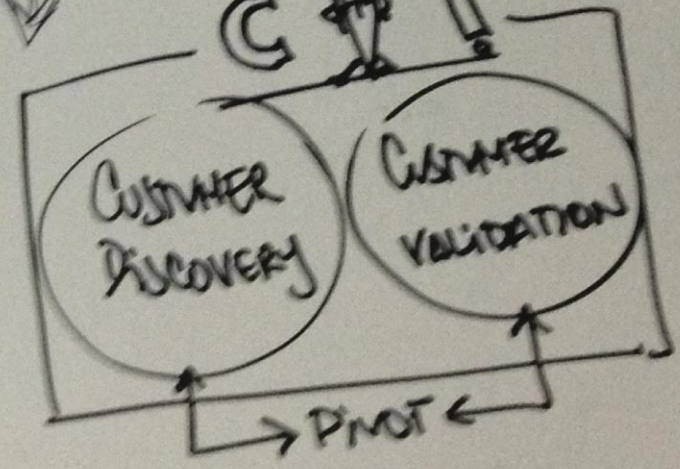 CUSTOMER
DISCOVERY
CUSTOMER
VALIDATION
PIVOT